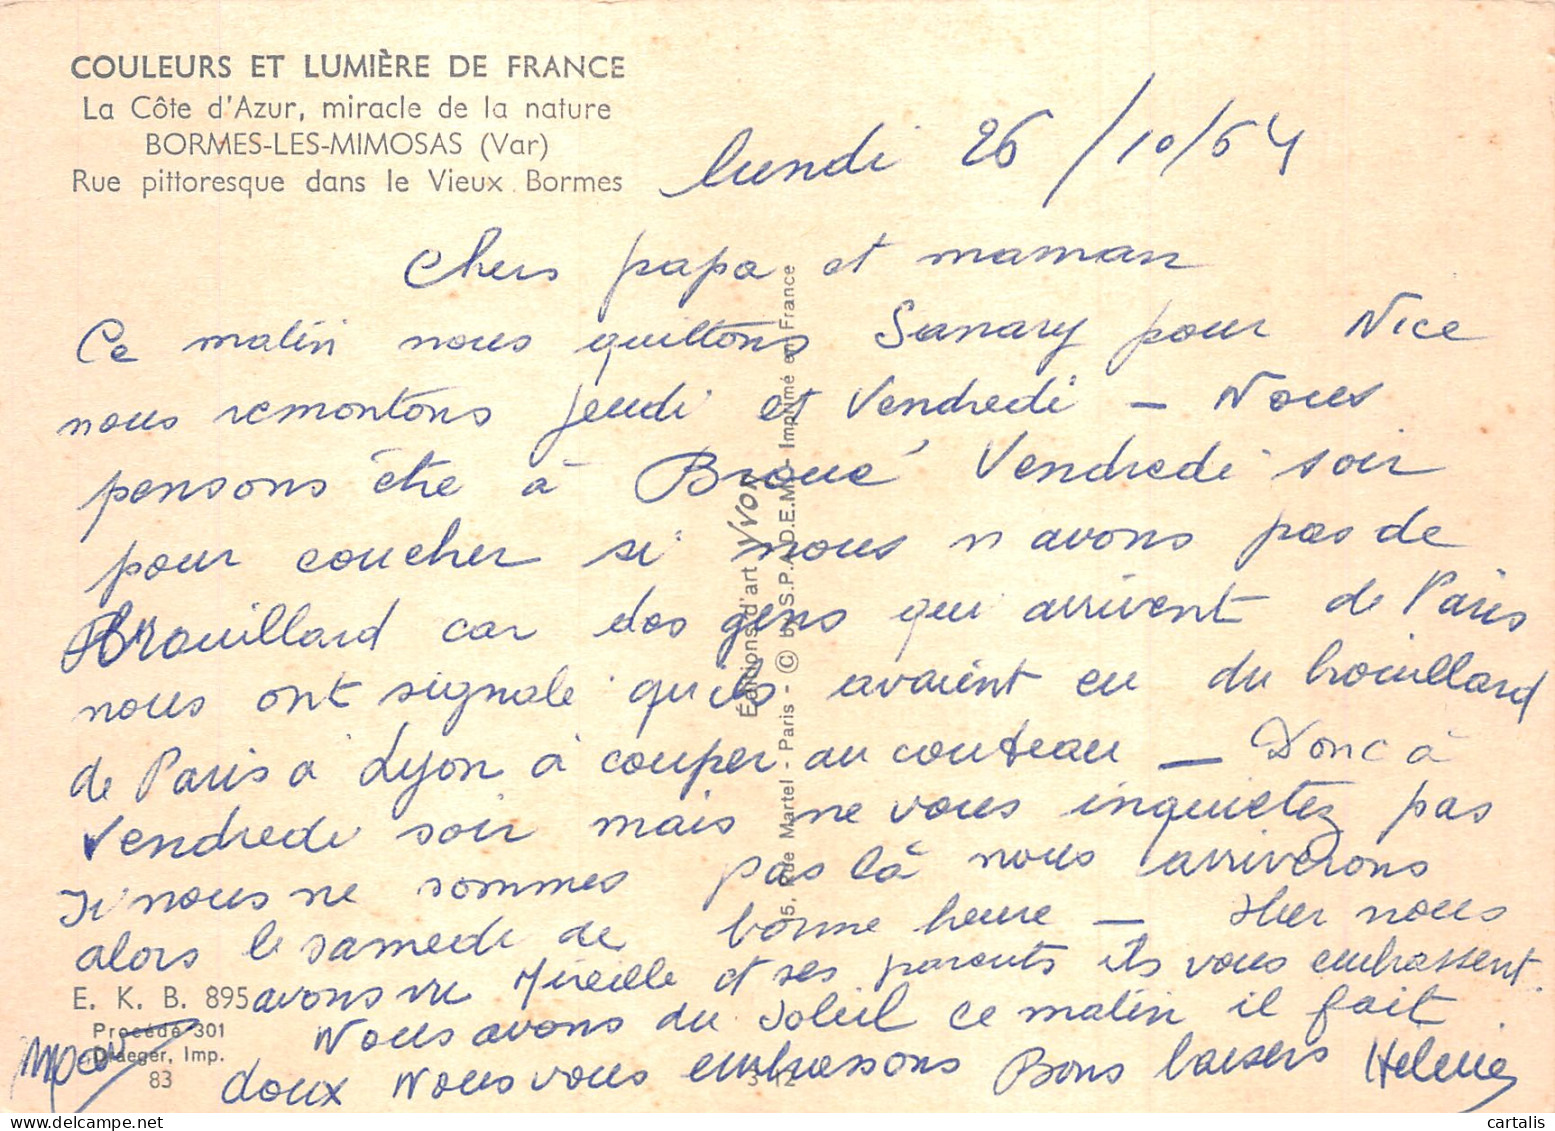 COULEURS ET LUMIÈRE DE FRANCE
La Côte d'Azur, miracle de la nature
BORMES-LES-MIMOSAS (Var)
Rue pittoresque dans le Vieux Bormes
lundi 26/10/64
Chers papa et maman
Ce matin nous quittons Sanary pour Nice
nous remontons jeudi et Vendredi — Nous
pensons être à Broué Vendredi soir
pour coucher si nous n avons pas de
Brouillard car des gens qui arrivent de Paris
nous ont signalé qu'ils avaient eu du brouillard
de Paris à Lyon à couper au couteau — Donc à
Vendredi soir mais ne vous inquietez pas
si nous ne sommes pas là nous arriverons
alors le samedi de bonne heure — Hier nous
avons vu Mireille et ses parents ils vous embrassent.
Nous avons du soleil ce matin il fait
doux Nous vous embrassons Bons baisers Hélène
E. K. B. 895
Procédé 301
Draeger, Imp.
83
Éditions d'art YVON
15, Rue Martel - Paris - © by S.P.A.D.E.M. - Imprimé en France
cartalis